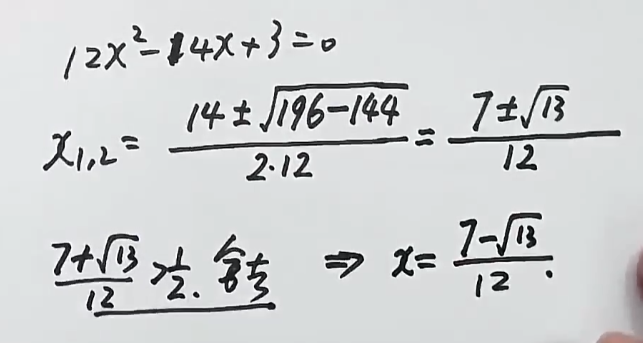 12x²-14x+3=0
x₁,₂= (14±√(196-144))/(2·12) = (7±√13)/12
(7+√13)/12 > 1/2. 舍去 ⇒ x= (7-√13)/12.